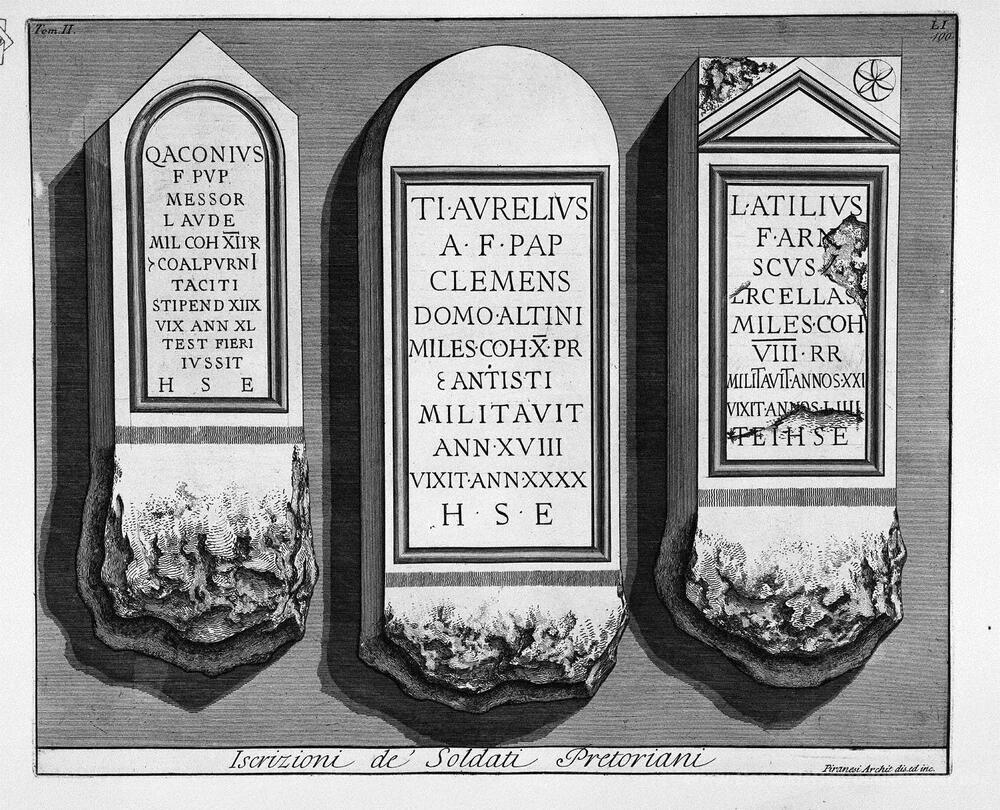 Tom. II.
LI
190
QACONIVS
F PVP
MESSOR
LAVDE
MIL COH X̅I̅I̅ R
COALPVRNI
TACITI
STIPEND XIIX
VIX ANN XL
TEST FIERI
IVSSIT
H S E
TI·AVRELIVS
A·F·PAP
CLEMENS
DOMO·ALTINI
MILES·COH·X̅·PR
ANTISTI
MILITAVIT
ANN·XVIII
VIXIT·ANN·XXXX
H·S·E
L·ATILIVS
F·ARN
SCVS
ERCELLAS
MILES·COH
V̅I̅I̅I̅·RR
MILITAVIT·ANNOS·XXI
VIXIT·ANNOS·LIIII
TEIHSE
Iscrizioni de' Soldati Pretoriani
Piranesi Archit dis. ed inc.